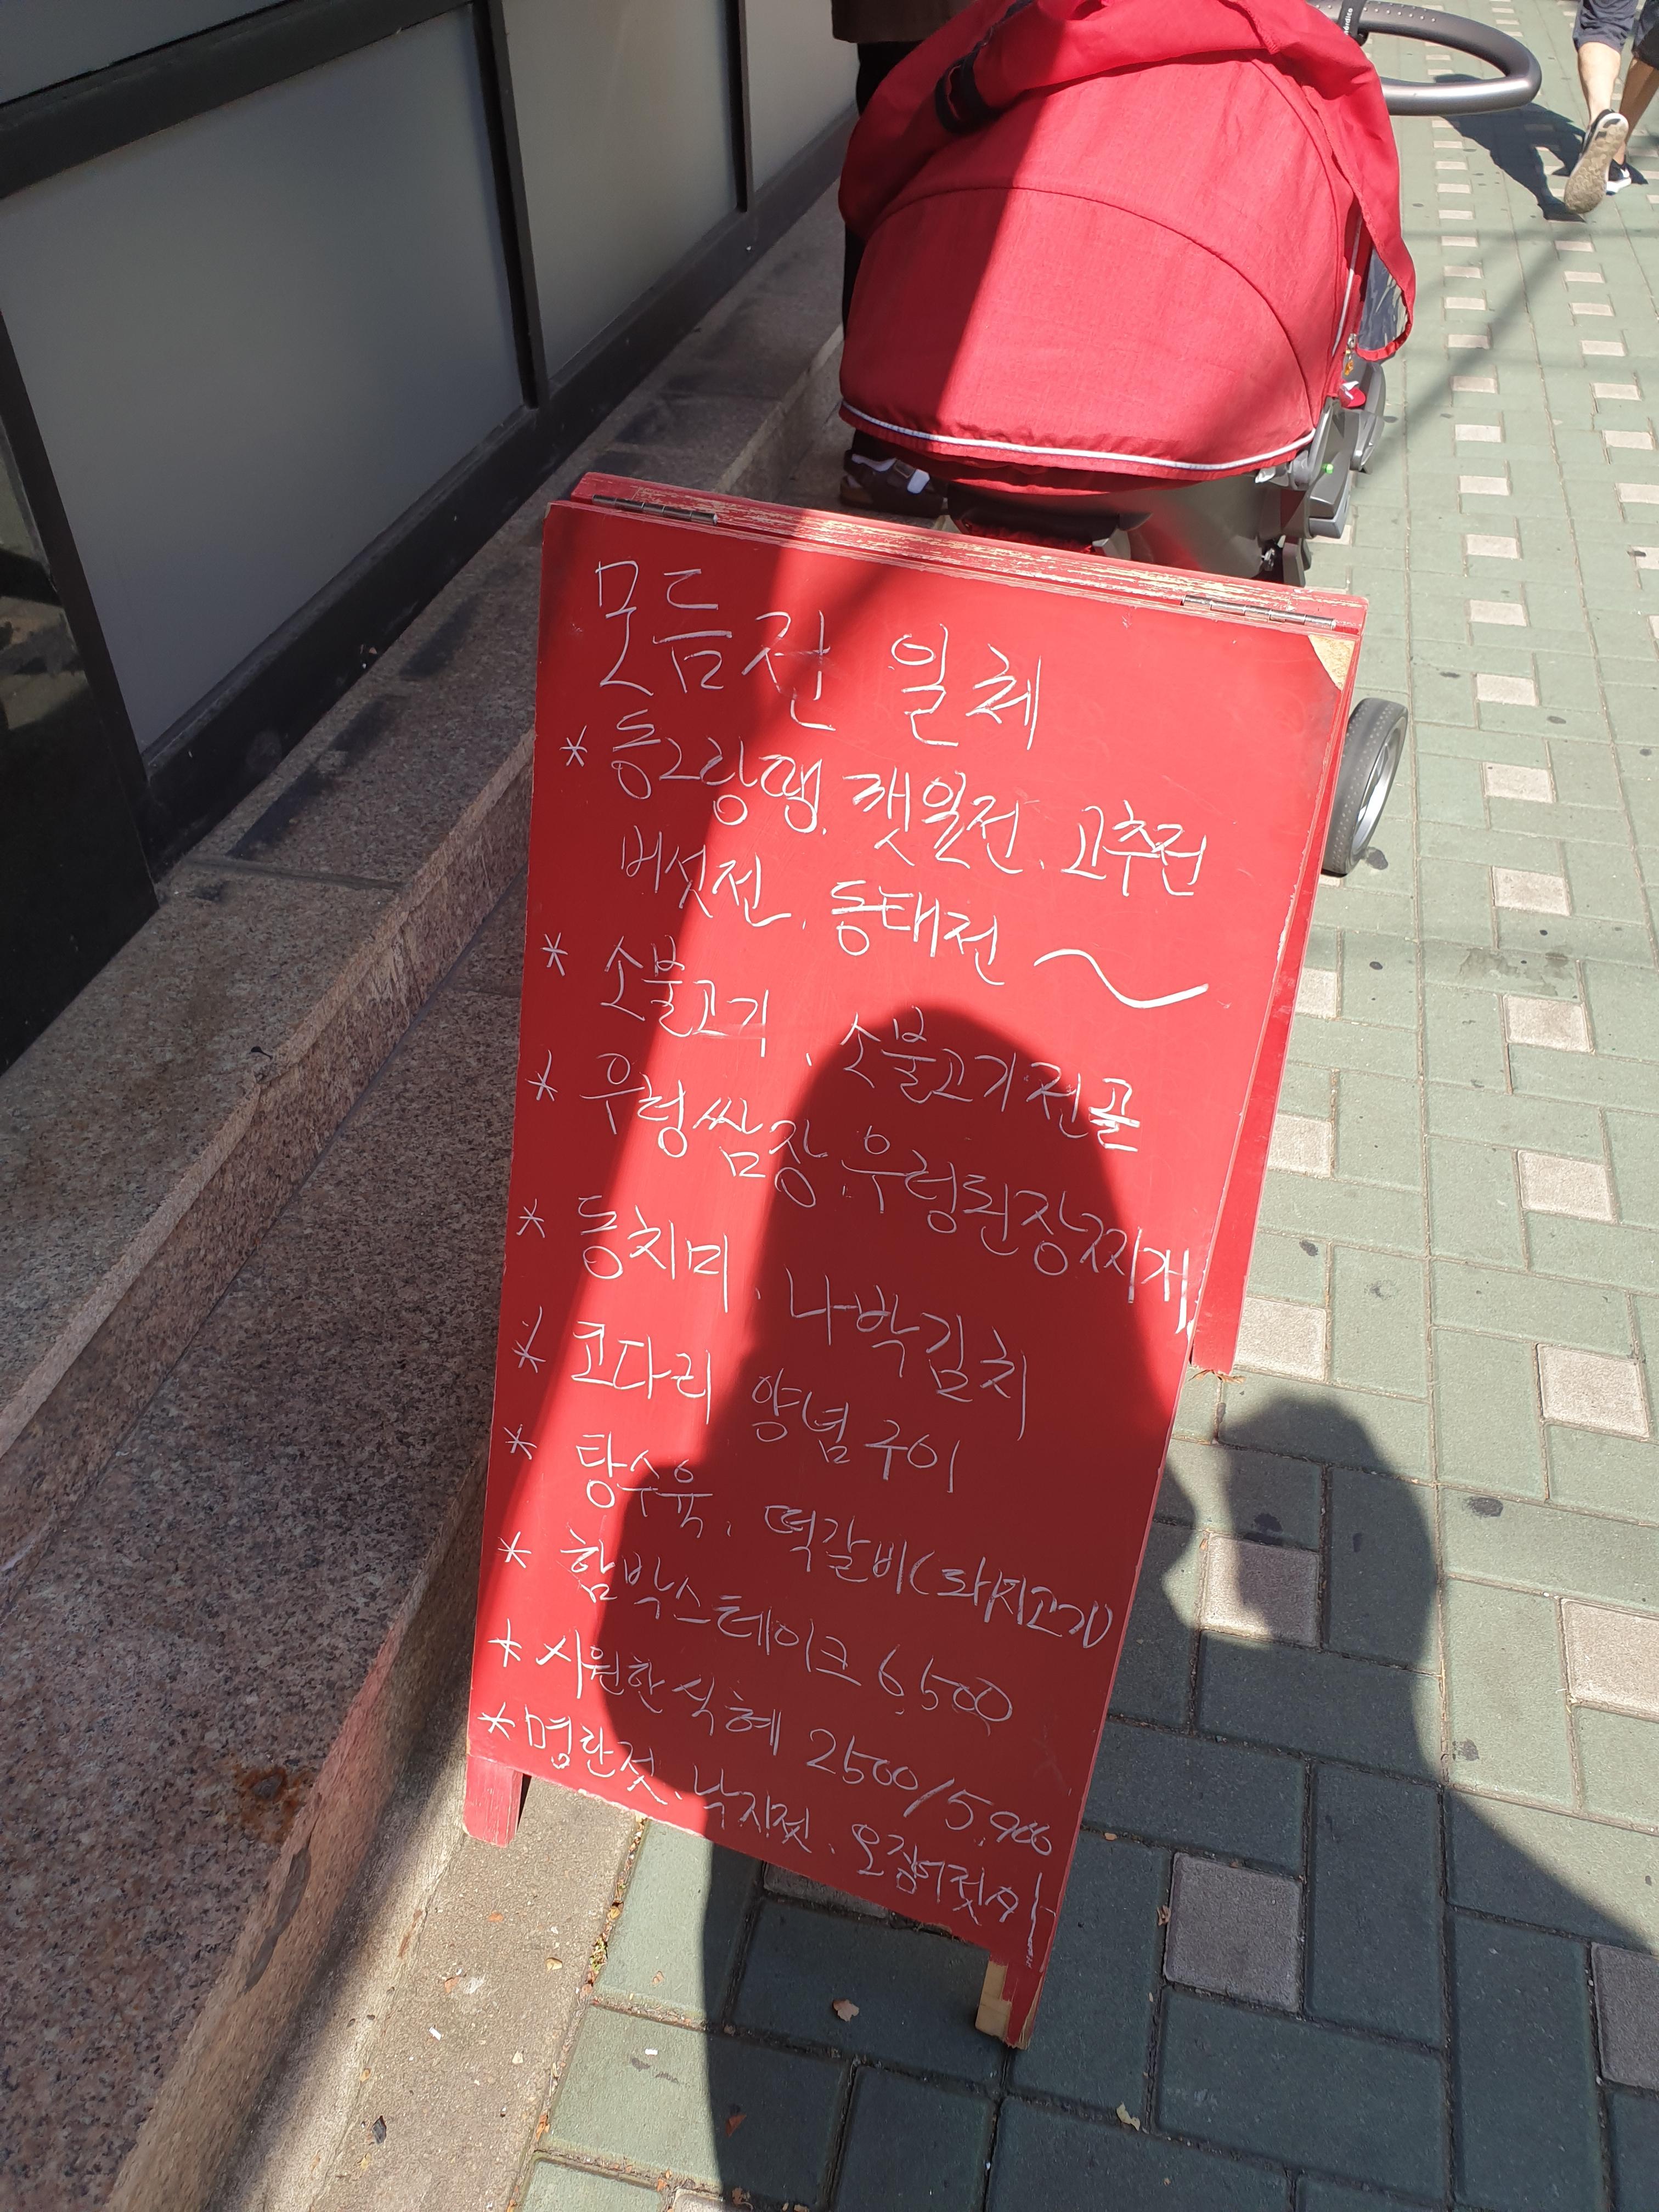 모듬전 일체
* 동그랑땡, 깻잎전, 고추전
버섯전, 동태전 ~
* 소불고기, 소불고기전골
* 우렁쌈장, 우렁된장찌개
* 동치미, 나박김치
* 코다리 양념구이
* 탕수육, 떡갈비(돼지고기)
* 함박스테이크 6,500
* 시원한 식혜 2500/5,900
* 명란젓, 낙지젓, 오징어젓